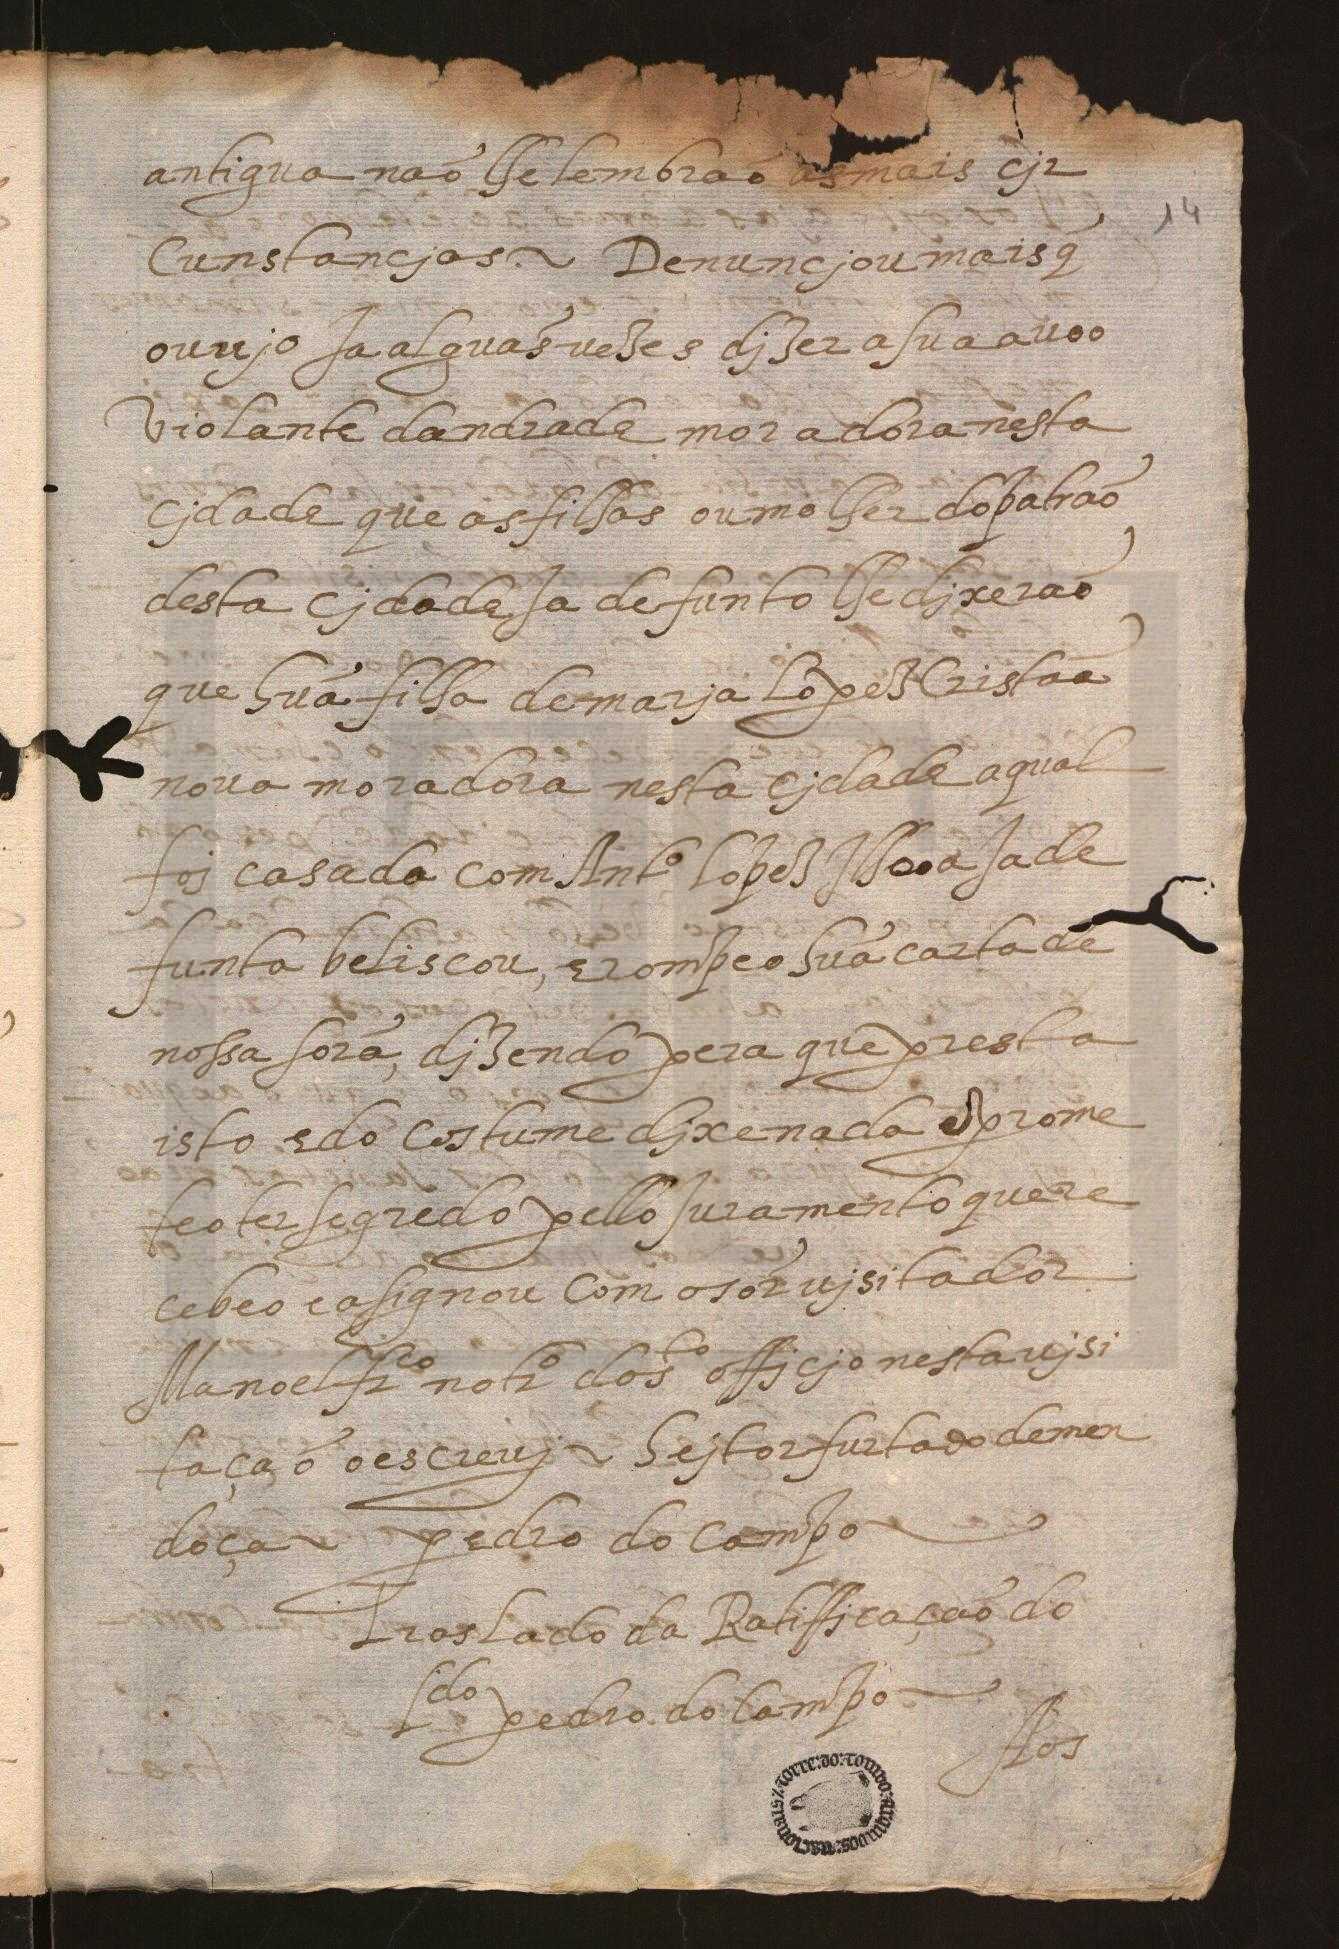 antigua naõ lhe lembraõ as mais cjr
14
cunstancjas ~ Denuncjou mais q̃
ouujo Ja alguãs uezes djzer a sua auoo
violante dandrade moradora nesta
cjdade que as filhas ou molher do patraõ
desta cjdade Ja defunto lhe djxeraõ
que huã filha de marja lopez Cristaã
noua moradora nesta cjdade a qual
foj casada com Antº lopez Ja de
funta beliscou, e rompeo huã carta de
nossa sorã, djzendo pera que presta
isto e do costume djxe nada e prome
teo ter segredo pello Juramento que re
cebeo e asignou Com o sõr ujsitador
Manoel frco notrº do sto officjo nesta ujsi
taçaõ o escreuj ~ hejtor furtado de men
doça ~ pedro do campo
Traslado da Ratifficaçaõ do
Ldo pedro do Campo
Aos
torre:do:tombo:arquivos:nacionais